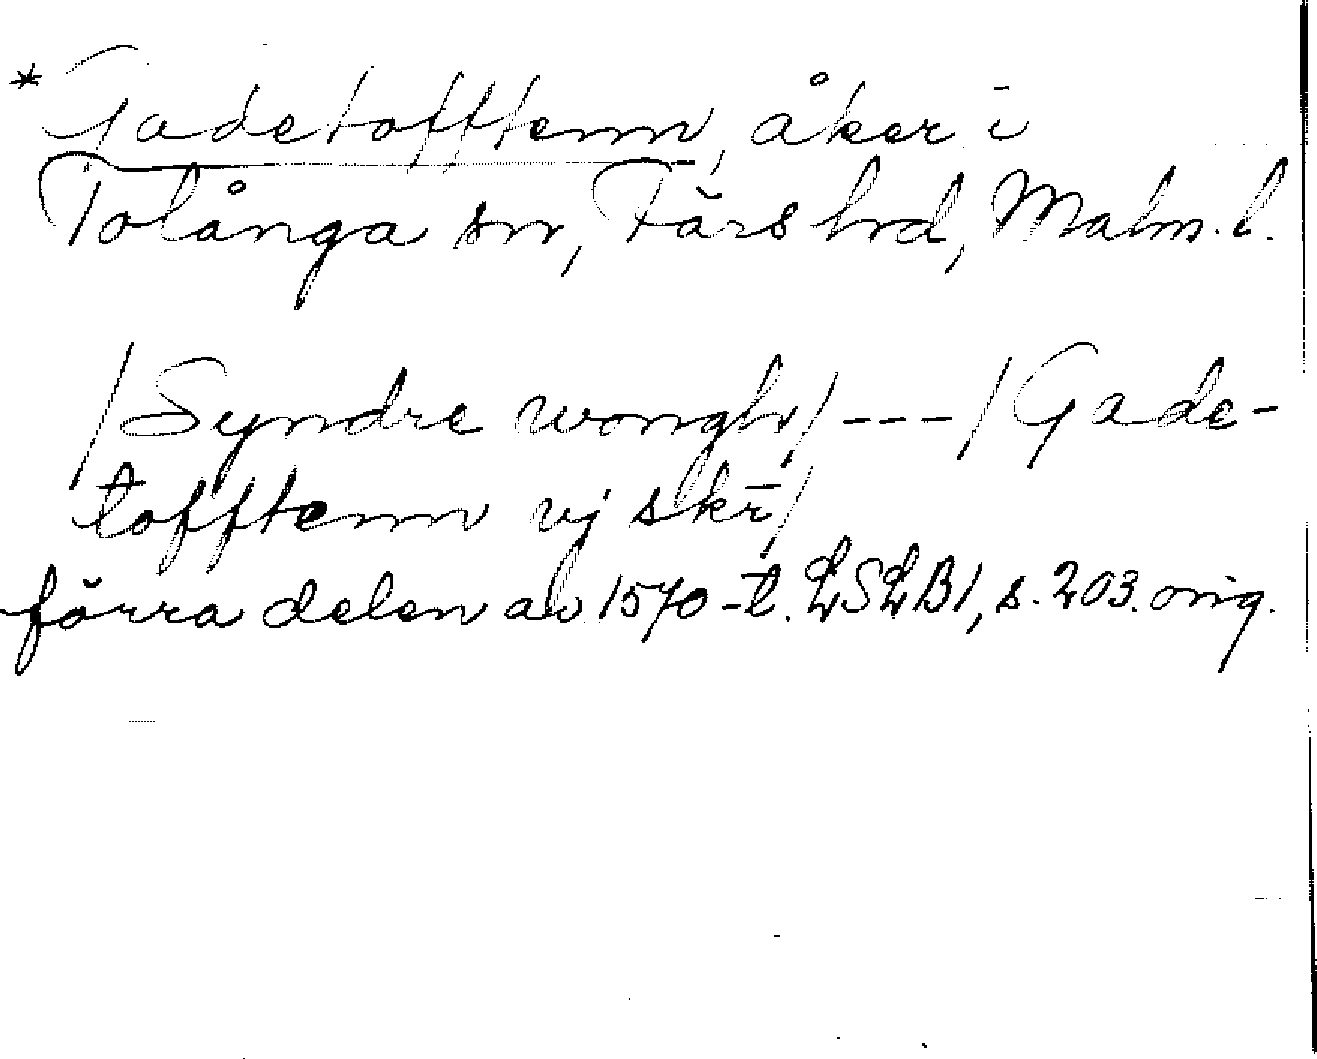 * Gadetofftenn, åker i
Tolånga sn, Färs hd, Malm. l.
/Syndre wongh/ --- /Gade-
tofftenn vj skr/
förra delen av 1570-t. LSLB1, s. 203. orig.